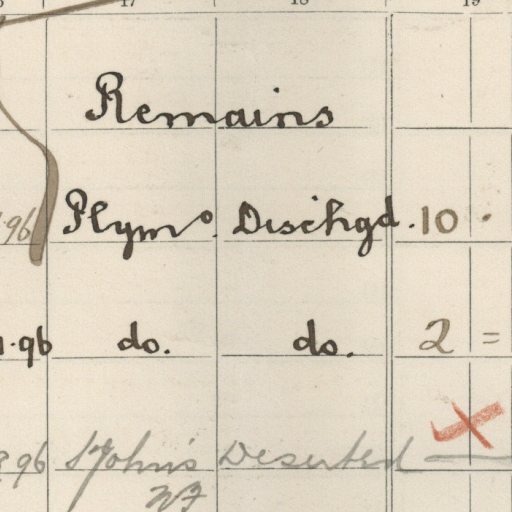 17 18 19
Remains
.96 Plymo. Dischgd. 10 .
.96 do. do. 2 =
96 St John's Deserted —
NF